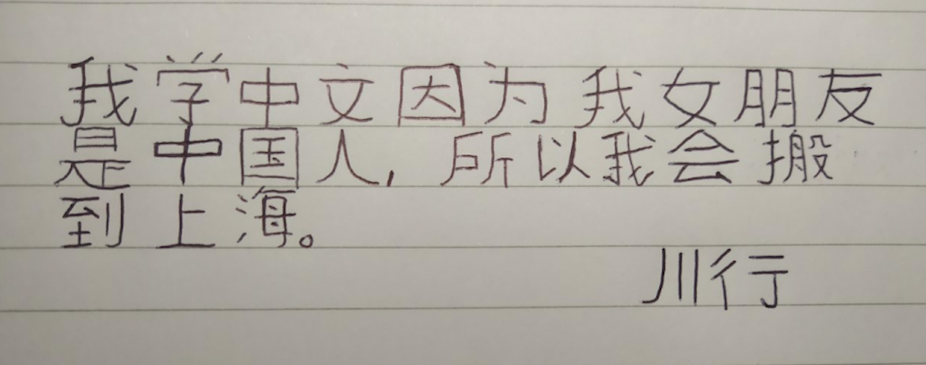 我学中文因为我女朋友
是中国人,所以我会搬
到上海。
川行